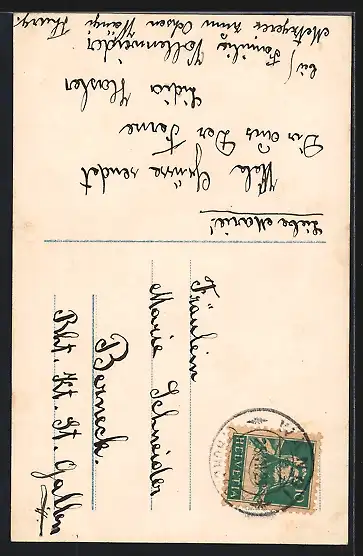 Liebe Marie!
Viele Grüsse sendet
Dir aus Der Ferne
Lidia Hasler
bei Familie Vollenweider
Metzgerei zum Ochsen Wängi
Thurg.
Fräulein
Marie Schneider
Berneck.
Rht. Kt. St. Gallen
HELVETIA
10